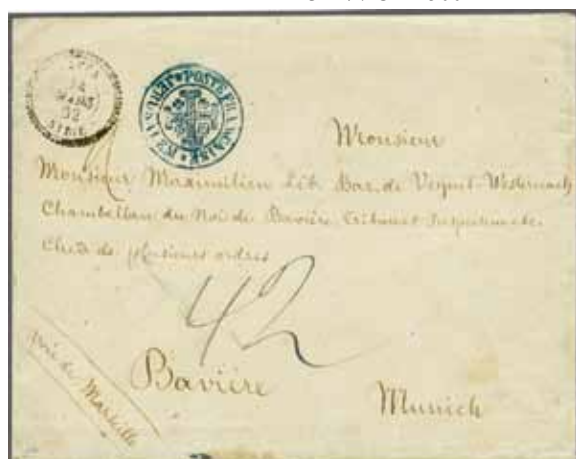 24
MARS
52
SYRIE
JERUSALEM * POSTE FRANÇAISE *
Monsieur
Monsieur Maximilien Lib. Bar. de
Chambellan du Roi de Bavière
Chev. de plusieurs ordres
42
Bavière
Munich
voie de Marseille